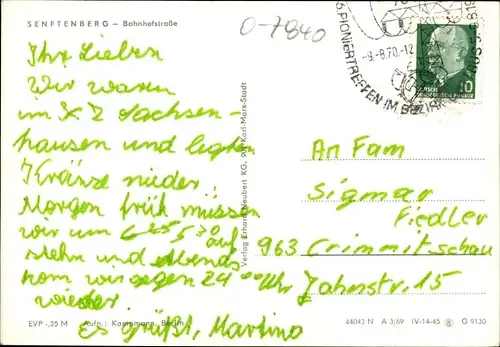 SENFTENBERG — Bahnhofstraße
O-7840
Ihr Lieben
Wir waren
im KZ Sachsen-
hausen und legten
Kränze nieder.
Morgen früh müssen
wir um 5 30 auf
stehn und Abends
kom wir gegen 24 00 Uhr
wieder
Es grüßt, Martina
EVP -,25 M Aufn.: Kampmann, Berlin
Verlag Erhard Neubert KG, Karl-Marx-Stadt
PIONIERTREFFEN IM BEZIRK
-9.-8.70.-12
10
An Fam
Sigmar
Fiedler
963 Crimmitschau
Jahnstr. 15
44043 N A 3/69 IV-14-45 G 9130